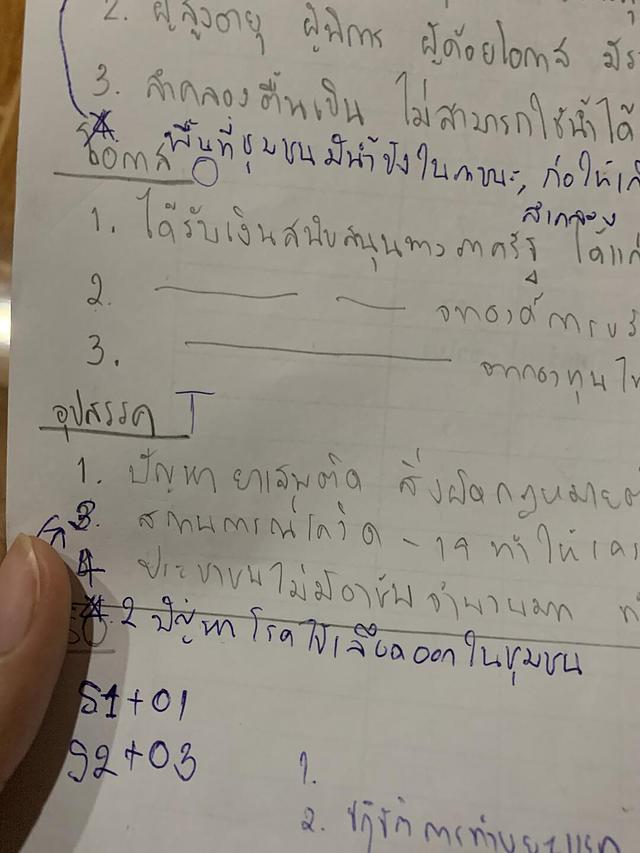 2. ผู้สูงอายุ ผู้พิการ ผู้ด้อยโอกาส มีร
3. ลำคลองตื้นเขิน ไม่สามารถใช้น้ำได้
4 พื้นที่ชุมชนมีน้ำขังในภาชนะ, ก่อให้เกิ
โอกาส O
ลำคลอง
1. ได้รับเงินสนับสนุนทางภาครัฐ ได้แก่
2. จากองค์การบริ
3. จากกองทุน
อุปสรรค T
1. ปัญหา ยาเสพติด สิ่งผิดกฎหมาย
3. สถานการณ์โควิด - 19 ทำให้
4 ประชาชนไม่มีอาชีพ จำนวนมาก
2 ปัญหา โรคไข้เลือดออกในชุมชน
SO
S1+O1
S2+O3
1.
2.